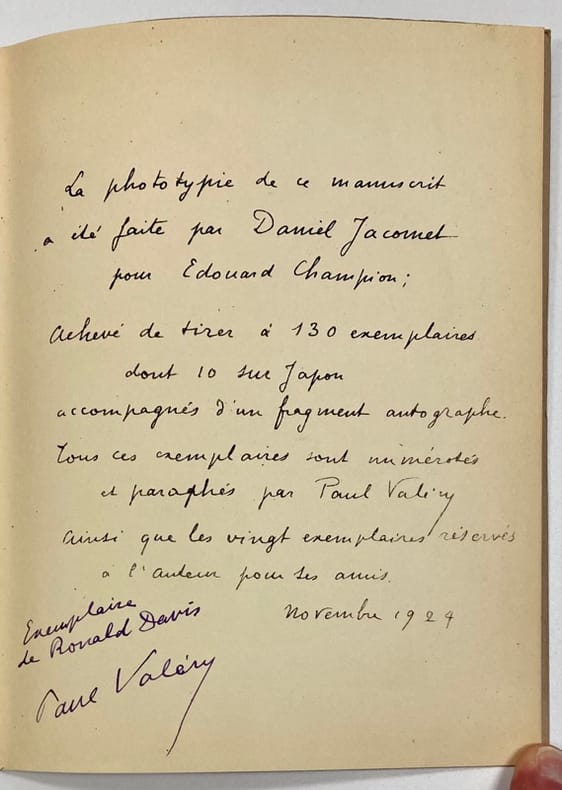 La phototypie de ce manuscrit
a été faite par Daniel Jacomet
pour Edouard Champion;
Achevé de tirer à 130 exemplaires
dont 10 sur Japon
accompagnés d'un fragment autographe.
Tous ces exemplaires sont numérotés
et paraphés par Paul Valéry
ainsi que les vingt exemplaires réservés
à l'auteur pour ses amis.
Novembre 1924
Exemplaire
de Ronald Davis
Paul Valéry